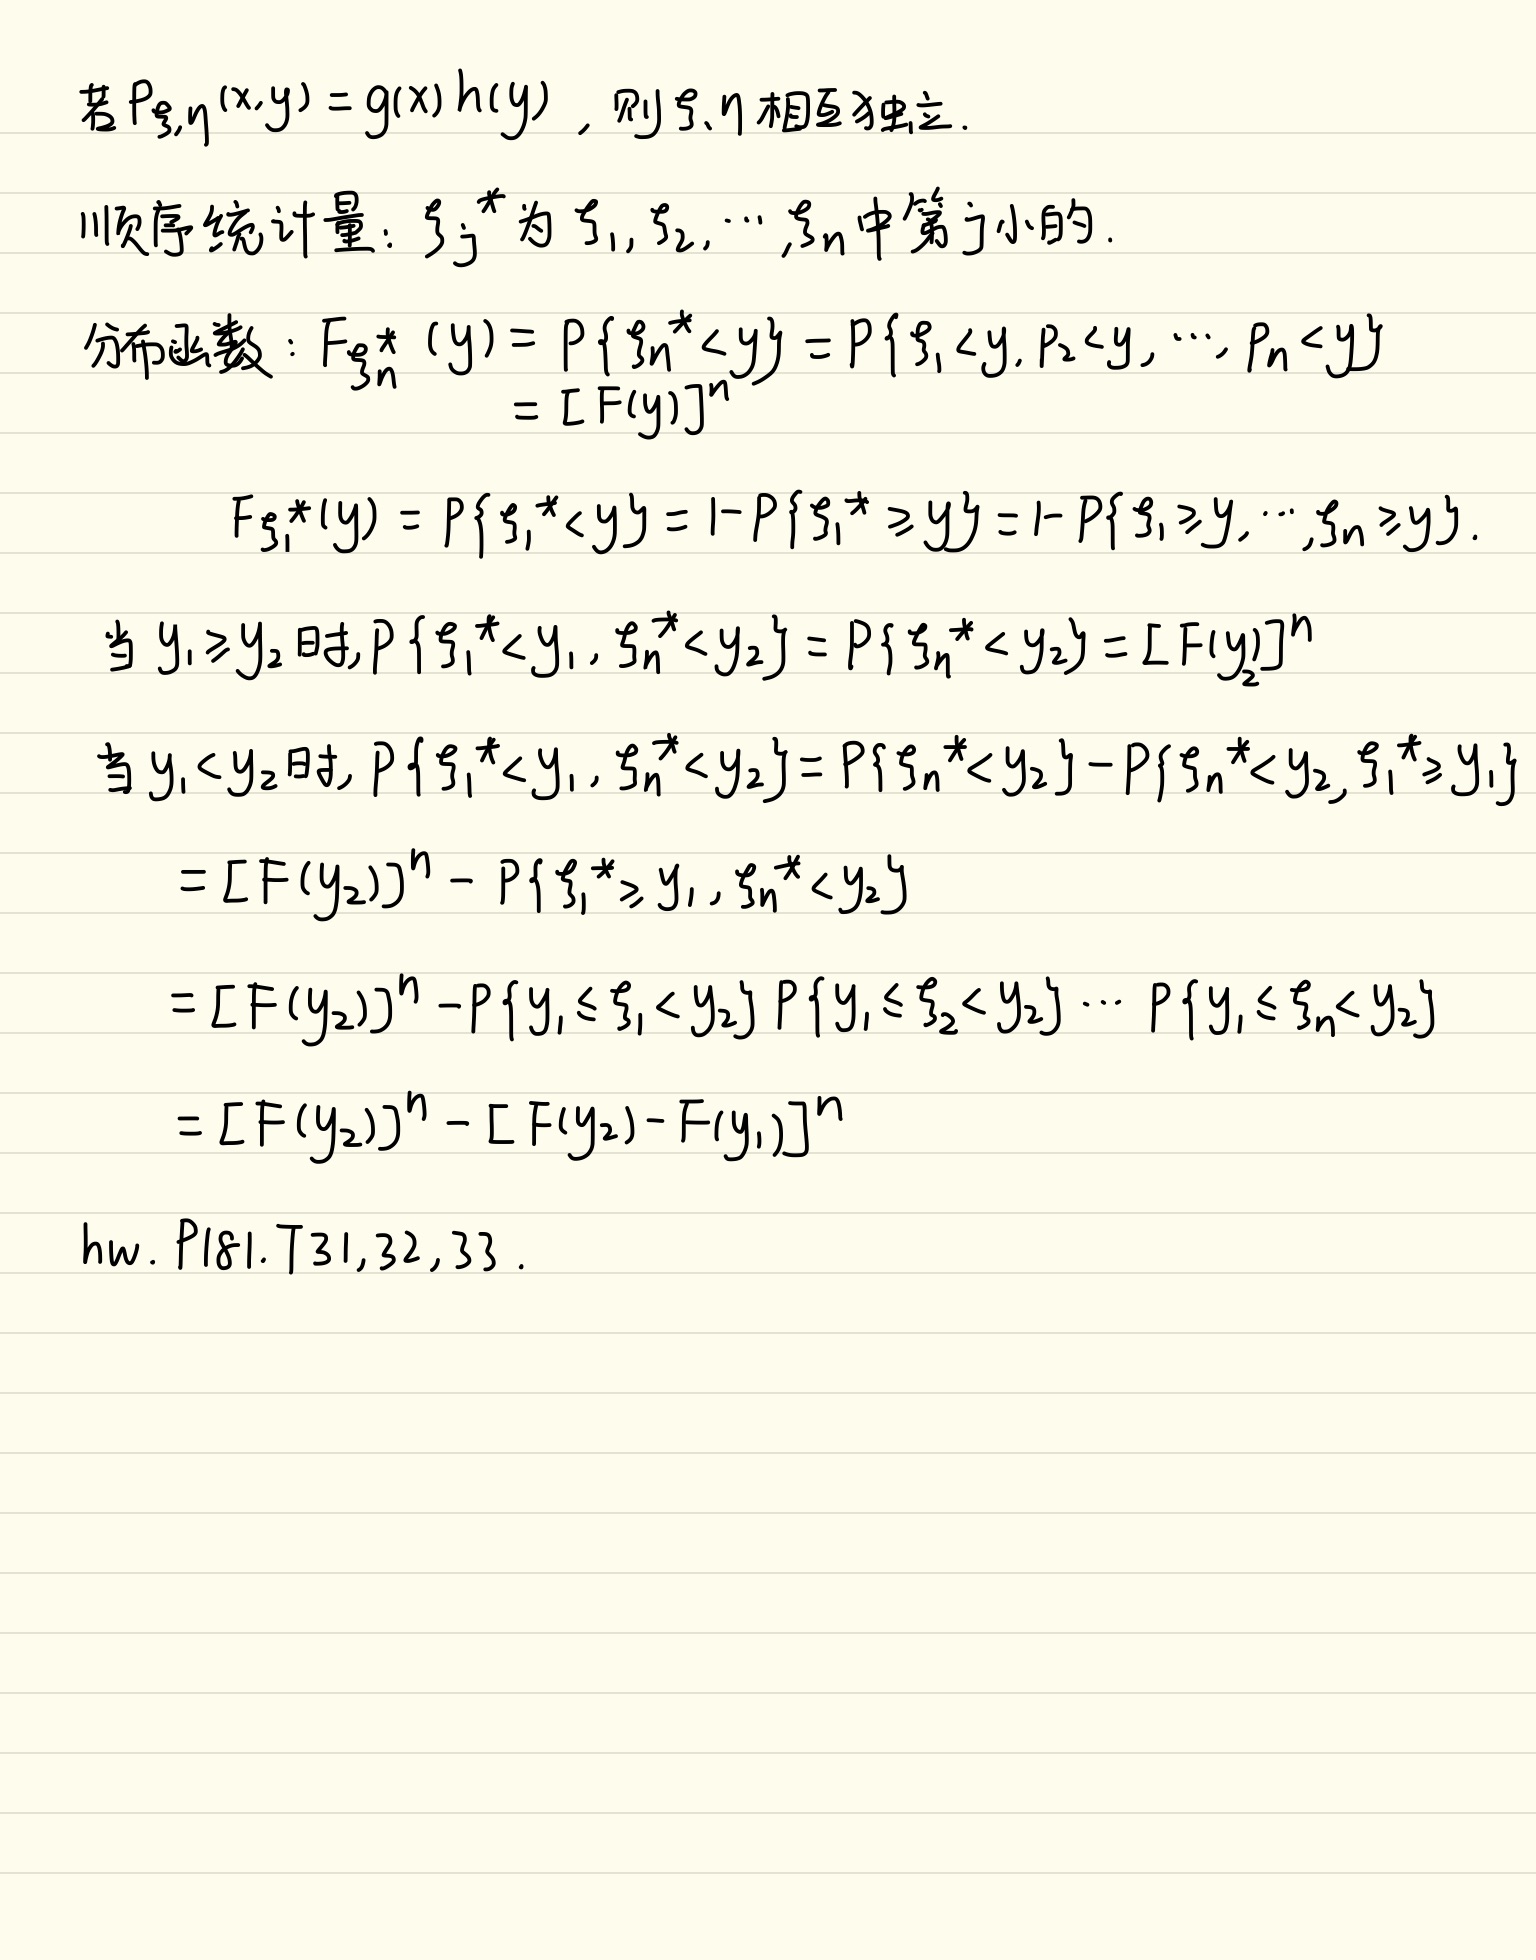 若 P_{ξ,η}(x,y) = g(x) h(y) , 则 ξ、η 相互独立.
顺序统计量: ξ_j^* 为 ξ_1, ξ_2, ⋯, ξ_n 中第 j 小的.
分布函数: F_{ξ_n^*}(y) = P{ξ_n^* < y} = P{ξ_1 < y, P_2 < y, ⋯, P_n < y}
= [F(y)]^n
F_{ξ_1^*}(y) = P{ξ_1^* < y} = 1 - P{ξ_1^* ≥ y} = 1 - P{ξ_1 ≥ y, ⋯, ξ_n ≥ y}.
当 y_1 ≥ y_2 时, P{ξ_1^* < y_1, ξ_n^* < y_2} = P{ξ_n^* < y_2} = [F(y_2)]^n
当 y_1 < y_2 时, P{ξ_1^* < y_1, ξ_n^* < y_2} = P{ξ_n^* < y_2} - P{ξ_n^* < y_2, ξ_1^* ≥ y_1}
= [F(y_2)]^n - P{ξ_1^* ≥ y_1, ξ_n^* < y_2}
= [F(y_2)]^n - P{y_1 ≤ ξ_1 < y_2} P{y_1 ≤ ξ_2 < y_2} ⋯ P{y_1 ≤ ξ_n < y_2}
= [F(y_2)]^n - [F(y_2) - F(y_1)]^n
hw. P181. T31, 32, 33.